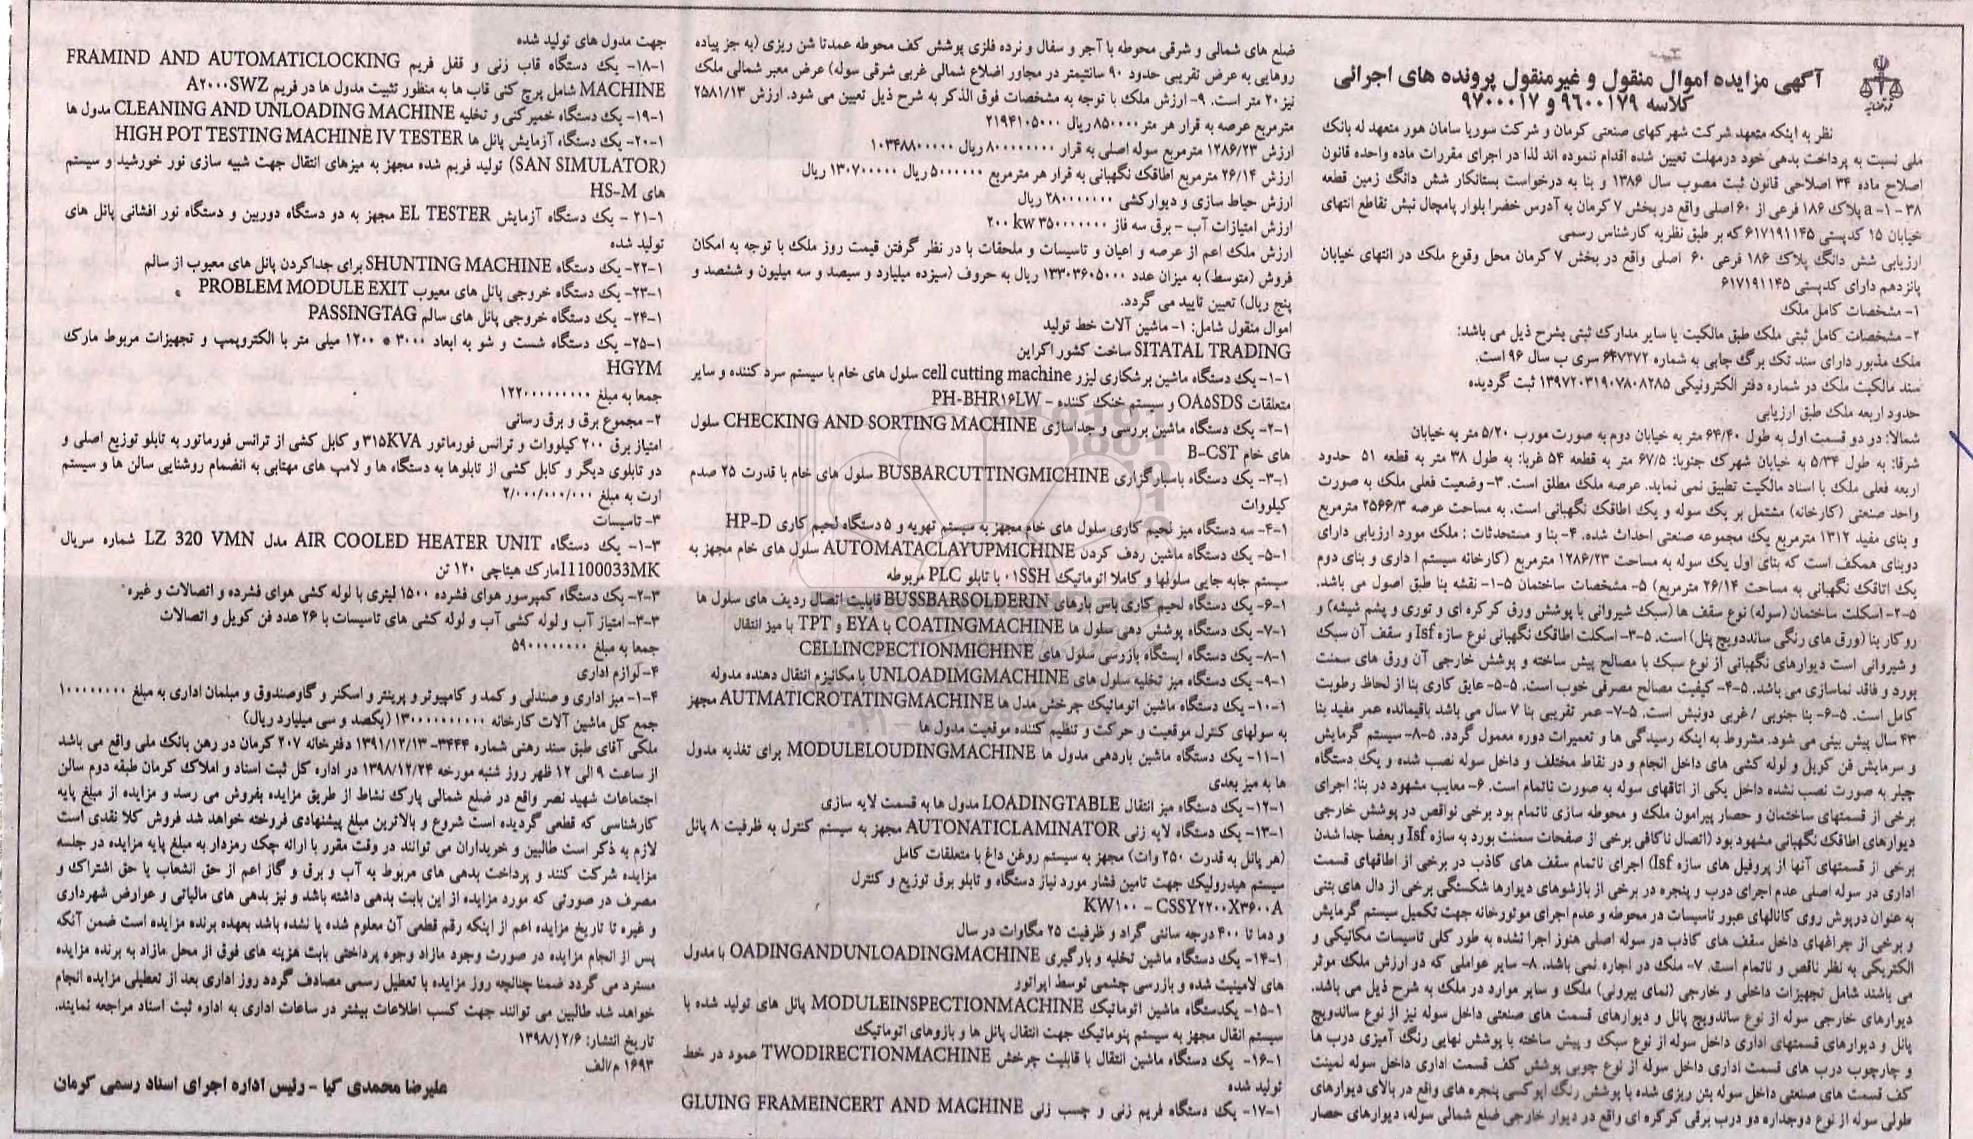 آگهی مزایده اموال منقول و غیرمنقول پرونده های اجرائی
کلاسه ۹۶۰۰۱۷۹ و ۹۷۰۰۰۱۷
نظر به اینکه متعهد شرکت شهرکهای صنعتی کرمان و شرکت سوریا سامان هور متعهد له بانک
ملی نسبت به پرداخت بدهی خود درمهلت تعیین شده اقدام ننموده اند لذا در اجرای مقررات ماده واحده قانون
اصلاح ماده ۳۴ اصلاحی قانون ثبت مصوب سال ۱۳۸۶ و بنا به درخواست بستانکار شش دانگ زمین قطعه
۳۸ - a - ۱ پلاک ۱۸۶ فرعی از ۶۰ اصلی واقع در بخش ۷ کرمان به آدرس خضرا بلوار پامچال نبش تقاطع انتهای
خیابان ۱۵ کدپستی ۶۱۷۱۹۱۱۴۵ که بر طبق نظریه کارشناس رسمی
ارزیابی شش دانگ پلاک ۱۸۶ فرعی ۶۰ اصلی واقع در بخش ۷ کرمان محل وقوع ملک در انتهای خیابان
پانزدهم دارای کدپستی ۶۱۷۱۹۱۱۴۵
۱- مشخصات کامل ملک
۲- مشخصات کامل ثبتی ملک طبق مالکیت یا سایر مدارک ثبتی بشرح ذیل می باشد:
ملک مذبور دارای سند تک برگ چاپی به شماره ۶۴۷۲۷۲ سری ب سال ۹۶ است.
سند مالکیت ملک در شماره دفتر الکترونیکی ۱۳۹۷۲۰۳۱۹۰۷۸۰۸۲۸۵ ثبت گردیده
حدود اربعه ملک طبق ارزیابی
شمالا: در دو قسمت اول به طول ۶۴/۴۰ متر به خیابان دوم به صورت مورب ۵/۲۰ متر به خیابان
شرقا: به طول ۵/۳۴ به خیابان شهرک جنوبا: ۶۷/۵ متر به قطعه ۵۴ غربا: به طول ۳۸ متر به قطعه ۵۱ حدود
اربعه فعلی ملک با اسناد مالکیت تطبیق نمی نماید. عرصه ملک مطلق است. ۳- وضعیت فعلی ملک به صورت
واحد صنعتی (کارخانه) مشتمل بر یک سوله و یک اطاقک نگهبانی است. به مساحت عرصه ۲۵۶۶/۳ مترمربع
و بنای مفید ۱۳۱۲ مترمربع یک مجموعه صنعتی احداث شده. ۴- بنا و مستحدثات : ملک مورد ارزیابی دارای
دوبنای همکف است که بنای اول یک سوله به مساحت ۱۲۸۶/۲۳ مترمربع (کارخانه سیستم اداری و بنای دوم
یک اتاقک نگهبانی به مساحت ۲۶/۱۴ مترمربع) ۵- مشخصات ساختمان ۵-۱- نقشه بنا طبق اصول می باشد.
۵-۲- اسکلت ساختمان (سوله) نوع سقف ها (سبک شیروانی با پوشش ورق کرکره ای و توری و پشم شیشه) و
روکار بنا (ورق های رنگی ساندویچ پنل) است. ۵-۳- اسکلت اطاقک نگهبانی نوع سازه lsf و سقف آن سبک
و شیروانی است دیوارهای نگهبانی از نوع سبک با مصالح پیش ساخته و پوشش خارجی آن ورق های سمنت
بورد و فاقد نماسازی می باشد. ۵-۴- کیفیت مصالح مصرفی خوب است. ۵-۵- عایق کاری بنا از لحاظ رطوبت
کامل است. ۵-۶- بنا جنوبی / غربی دونبش است. ۵-۷- عمر تقریبی بنا ۷ سال می باشد باقیمانده عمر مفید بنا
۴۳ سال پیش بینی می شود. مشروط به اینکه رسیدگی ها و تعمیرات دوره معمول گردد. ۵-۸- سیستم گرمایش
و سرمایش فن کویل و لوله کشی های داخل انجام و در نقاط مختلف و داخل سوله نصب شده و یک دستگاه
چیلر به صورت نصب نشده داخل یکی از اتاقهای سوله به صورت ناتمام است. ۶- معایب مشهود در بنا: اجرای
برخی از قسمتهای ساختمان و حصار پیرامون ملک و محوطه سازی ناتمام بود برخی نواقص در پوشش خارجی
دیوارهای اطاقک نگهبانی مشهود بود (اتصال ناکافی برخی از صفحات سمنت بورد به سازه lsf و بعضا جدا شدن
برخی از قسمتهای آنها از پروفیل های سازه lsf) اجرای ناتمام سقف های کاذب در برخی از اطاقهای قسمت
اداری در سوله اصلی عدم اجرای درب و پنجره در برخی از بازشوهای دیوارها شکستگی برخی از دال های بتنی
به عنوان درپوش روی کانالهای عبور تاسیسات در محوطه و عدم اجرای موتورخانه جهت تکمیل سیستم گرمایش
و برخی از چراغهای داخل سقف های کاذب در سوله اصلی هنوز اجرا نشده به طور کلی تاسیسات مکانیکی و
الکتریکی به نظر ناقص و ناتمام است. ۷- ملک در اجاره نمی باشد. ۸- سایر عواملی که در ارزش ملک موثر
می باشند شامل تجهیزات داخلی و خارجی (نمای بیرونی) ملک و سایر موارد در ملک به شرح ذیل می باشد.
دیوارهای خارجی سوله از نوع ساندویچ پانل و دیوارهای قسمت های صنعتی داخل سوله نیز از نوع ساندویچ
پانل و دیوارهای قسمتهای اداری داخل سوله از نوع سبک و پیش ساخته با پوشش نهایی رنگ آمیزی درب ها
و چارچوب درب های قسمت اداری داخل سوله از نوع چوبی پوشش کف قسمت اداری داخل سوله لمینت
کف قسمت های صنعتی داخل سوله بتن ریزی شده با پوشش رنگ اپوکسی پنجره های واقع در بالای دیوارهای
طولی سوله از نوع دوجداره دو درب برقی کرکره ای واقع در دیوار خارجی ضلع شمالی سوله، دیوارهای حصار
ضلع های شمالی و شرقی محوطه با آجر و سفال و نرده فلزی پوشش کف محوطه عمدتا شن ریزی (به جز پیاده
روهایی به عرض تقریبی حدود ۹۰ سانتیمتر در مجاور اضلاع شمالی غربی شرقی سوله) عرض معبر شمالی ملک
نیز ۲۰ متر است. ۹- ارزش ملک با توجه به مشخصات فوق الذکر به شرح ذیل تعیین می شود. ارزش ۲۵۸۱/۱۳
مترمربع عرصه به قرار هر متر ۸۵۰۰۰۰ ریال ۲۱۹۴۱۰۵۰۰۰
ارزش ۱۲۸۶/۲۳ مترمربع سوله اصلی به قرار ۸۰۰۰۰۰۰۰۰ ریال ۱۰۳۴۸۸۰۰۰۰۰
ارزش ۲۶/۱۴ مترمربع اطاقک نگهبانی به قرار هر مترمربع ۵۰۰۰۰۰۰ ریال ۱۳۰۷۰۰۰۰۰ ریال
ارزش حیاط سازی و دیوارکشی ۲۸۰۰۰۰۰۰۰ ریال
ارزش امتیازات آب - برق سه فاز ۳۵۰۰۰۰۰۰۰ kw ۲۰۰
ارزش ملک اعم از عرصه و اعیان و تاسیسات و ملحقات با در نظر گرفتن قیمت روز ملک با توجه به امکان
فروش (متوسط) به میزان عدد ۱۳۳۰۳۶۰۵۰۰۰ ریال به حروف (سیزده میلیارد و سیصد و سه میلیون و ششصد و
پنج ریال) تعیین تایید می گردد.
اموال منقول شامل: ۱- ماشین آلات خط تولید
SITATAL TRADING ساخت کشور اکراین
۱-۱- یک دستگاه ماشین برشکاری لیزر cell cutting machine سلول های خام با سیستم سرد کننده و سایر
متعلقات OA۵SDS و سیستم خنک کننده - PH-BHR۱۶LW
۲-۱- یک دستگاه ماشین بررسی و جداسازی CHECKING AND SORTING MACHINE سلول
های خام B-CST
۳-۱- یک دستگاه باسبارگزاری BUSBARCUTTINGMICHINE سلول های خام با قدرت ۲۵ صدم
کیلووات
۴-۱- سه دستگاه میز لحیم کاری سلول های خام مجهز به سیستم تهویه و ۵ دستگاه لحیم کاری HP-D
۵-۱- یک دستگاه ماشین ردف کردن AUTOMATACLAYUPMICHINE سلول های خام مجهز به
سیستم جابه جایی سلولها و کاملا اتوماتیک ۰۱SSH با تابلو PLC مربوطه
۶-۱- یک دستگاه لحیم کاری باس بارهای BUSSBARSOLDERIN قابلیت اتصال ردیف های سلول ها
۷-۱- یک دستگاه پوشش دهی سلول ها COATINGMACHINE با EYA و TPT با میز انتقال
۸-۱- یک دستگاه ایستگاه بازرسی سلول های CELLINCPECTIONMICHINE
۹-۱- یک دستگاه میز تخلیه سلول های UNLOADIMGMACHINE با مکانیزم انتقال دهنده مدوله
۱۰-۱- یک دستگاه ماشین اتوماتیک چرخش مدل ها AUTMATICROTATINGMACHINE مجهز
به سولهای کنترل موقعیت و حرکت و تنظیم کننده موقعیت مدول ها
۱۱-۱- یک دستگاه ماشین باردهی مدول ها MODULELOUDINGMACHINE برای تغذیه مدول
ها به میز بعدی
۱۲-۱- یک دستگاه میز انتقال LOADINGTABLE مدول ها به قسمت لایه سازی
۱۳-۱- یک دستگاه لایه زنی AUTONATICLAMINATOR مجهز به سیستم کنترل به ظرفیت ۸ پانل
(هر پانل به قدرت ۲۵۰ وات) مجهز به سیستم روغن داغ با متعلقات کامل
سیستم هیدرولیک جهت تامین فشار مورد نیاز دستگاه و تابلو برق توزیع و کنترل
KW۱۰۰ - CSSY۲۲۰۰X۳۶۰۰A
و دما تا ۴۰۰ درجه سانتی گراد و ظرفیت ۲۵ مگاوات در سال
۱۴-۱- یک دستگاه ماشین تخلیه و بارگیری OADINGANDUNLOADINGMACHINE با مدول
های لامینیت شده و بازرسی چشمی توسط اپراتور
۱۵-۱- یکدستگاه ماشین اتوماتیک MODULEINSPECTIONMACHINE پانل های تولید شده با
سیستم انقال مجهز به سیستم پنوماتیک جهت انتقال پانل ها و بازوهای اتوماتیک
۱۶-۱- یک دستگاه ماشین انتقال با قابلیت چرخش TWODIRECTIONMACHINE عمود در خط
تولید شده
۱۷-۱- یک دستگاه فریم زنی و چسب زنی GLUING FRAMEINCERT AND MACHINE
جهت مدول های تولید شده
۱۸-۱- یک دستگاه قاب زنی و قفل فریم FRAMIND AND AUTOMATICLOCKING
MACHINE شامل پرچ کنی قاب ها به منظور تثبیت مدول ها در فریم A۲۰۰۰SWZ
۱۹-۱- یک دستگاه خمیرکنی و تخلیه CLEANING AND UNLOADING MACHINE مدول ها
۲۰-۱- یک دستگاه آزمایش پانل ها HIGH POT TESTING MACHINE IV TESTER
(SAN SIMULATOR) تولید فریم شده مجهز به میزهای انتقال جهت شبیه سازی نور خورشید و سیستم
های HS-M
۲۱-۱ - یک دستگاه آزمایش EL TESTER مجهز به دو دستگاه دوربین و دستگاه نور افشانی پانل های
تولید شده
۲۲-۱- یک دستگاه SHUNTING MACHINE برای جداکردن پانل های معیوب از سالم
۲۳-۱- یک دستگاه خروجی پانل های معیوب PROBLEM MODULE EXIT
۲۴-۱- یک دستگاه خروجی پانل های سالم PASSINGTAG
۲۵-۱- یک دستگاه شست و شو به ابعاد ۳۰۰۰ * ۱۲۰۰ میلی متر با الکتروپمپ و تجهیزات مربوط مارک
HGYM
جمعا به مبلغ ۱۲۲۰۰۰۰۰۰۰۰۰
۲- مجموع برق و برق رسانی
امتیاز برق ۲۰۰ کیلووات و ترانس فورماتور ۳۱۵KVA و کابل کشی از ترانس فورماتور به تابلو توزیع اصلی و
دو تابلوی دیگر و کابل کشی از تابلوها به دستگاه ها و لامپ های مهتابی به انضمام روشنایی سالن ها و سیستم
ارت به مبلغ ۲/۰۰۰/۰۰۰/۰۰۰
۳- تاسیسات
۳-۱- یک دستگاه AIR COOLED HEATER UNIT مدل LZ 320 VMN شماره سریال
11100033MK مارک هیتاچی ۱۲۰ تن
۳-۲- یک دستگاه کمپرسور هوای فشرده ۱۵۰۰ لیتری با لوله کشی هوای فشرده و اتصالات و غیره
۳-۳- امتیاز آب و لوله کشی آب و لوله کشی های تاسیسات با ۲۶ عدد فن کویل و اتصالات
جمعا به مبلغ ۵۹۰۰۰۰۰۰۰۰
۴- لوازم اداری
۴-۱- میز اداری و صندلی و کمد و کامپیوتر و پرینتر و اسکنر و گاوصندوق و مبلمان اداری به مبلغ ۱۰۰۰۰۰۰۰۰
جمع کل ماشین آلات کارخانه ۱۳۰۰۰۰۰۰۰۰۰۰ (یکصد و سی میلیارد ریال)
ملکی آقای طبق سند رهنی شماره ۳۴۴۴- ۱۳۹۱/۱۲/۱۳ دفترخانه ۲۰۷ کرمان در رهن بانک ملی واقع می باشد
از ساعت ۹ الی ۱۲ ظهر روز شنبه مورخه ۱۳۹۸/۱۲/۲۴ در اداره کل ثبت اسناد و املاک کرمان طبقه دوم سالن
اجتماعات شهید نصر واقع در ضلع شمالی پارک نشاط از طریق مزایده بفروش می رسد و مزایده از مبلغ پایه
کارشناسی که قطعی گردیده است شروع و بالاترین مبلغ پیشنهادی فروخته خواهد شد فروش کلا نقدی است
لازم به ذکر است طالبین و خریداران می توانند در وقت مقرر با ارائه چک رمزدار به مبلغ پایه مزایده در جلسه
مزایده شرکت کنند و پرداخت بدهی های مربوط به آب و برق و گاز اعم از حق انشعاب یا حق اشتراک و
مصرف در صورتی که مورد مزایده از این بابت بدهی داشته باشد و نیز بدهی های مالیاتی و عوارض شهرداری
و غیره تا تاریخ مزایده اعم از اینکه رقم قطعی آن معلوم شده یا نشده باشد بعهده برنده مزایده است ضمن آنکه
پس از انجام مزایده در صورت وجود مازاد وجوه پرداختی بابت هزینه های فوق از محل مازاد به برنده مزایده
مسترد می گردد ضمنا چنانچه روز مزایده با تعطیل رسمی مصادف گردد روز اداری بعد از تعطیلی مزایده انجام
خواهد شد طالبین می توانند جهت کسب اطلاعات بیشتر در ساعات اداری به اداره ثبت اسناد مراجعه نمایند.
تاریخ انتشار: ۱۳۹۸/۱۲/۶
۱۶۹۳ م/الف
علیرضا محمدی کیا - رئیس اداره اجرای اسناد رسمی کرمان